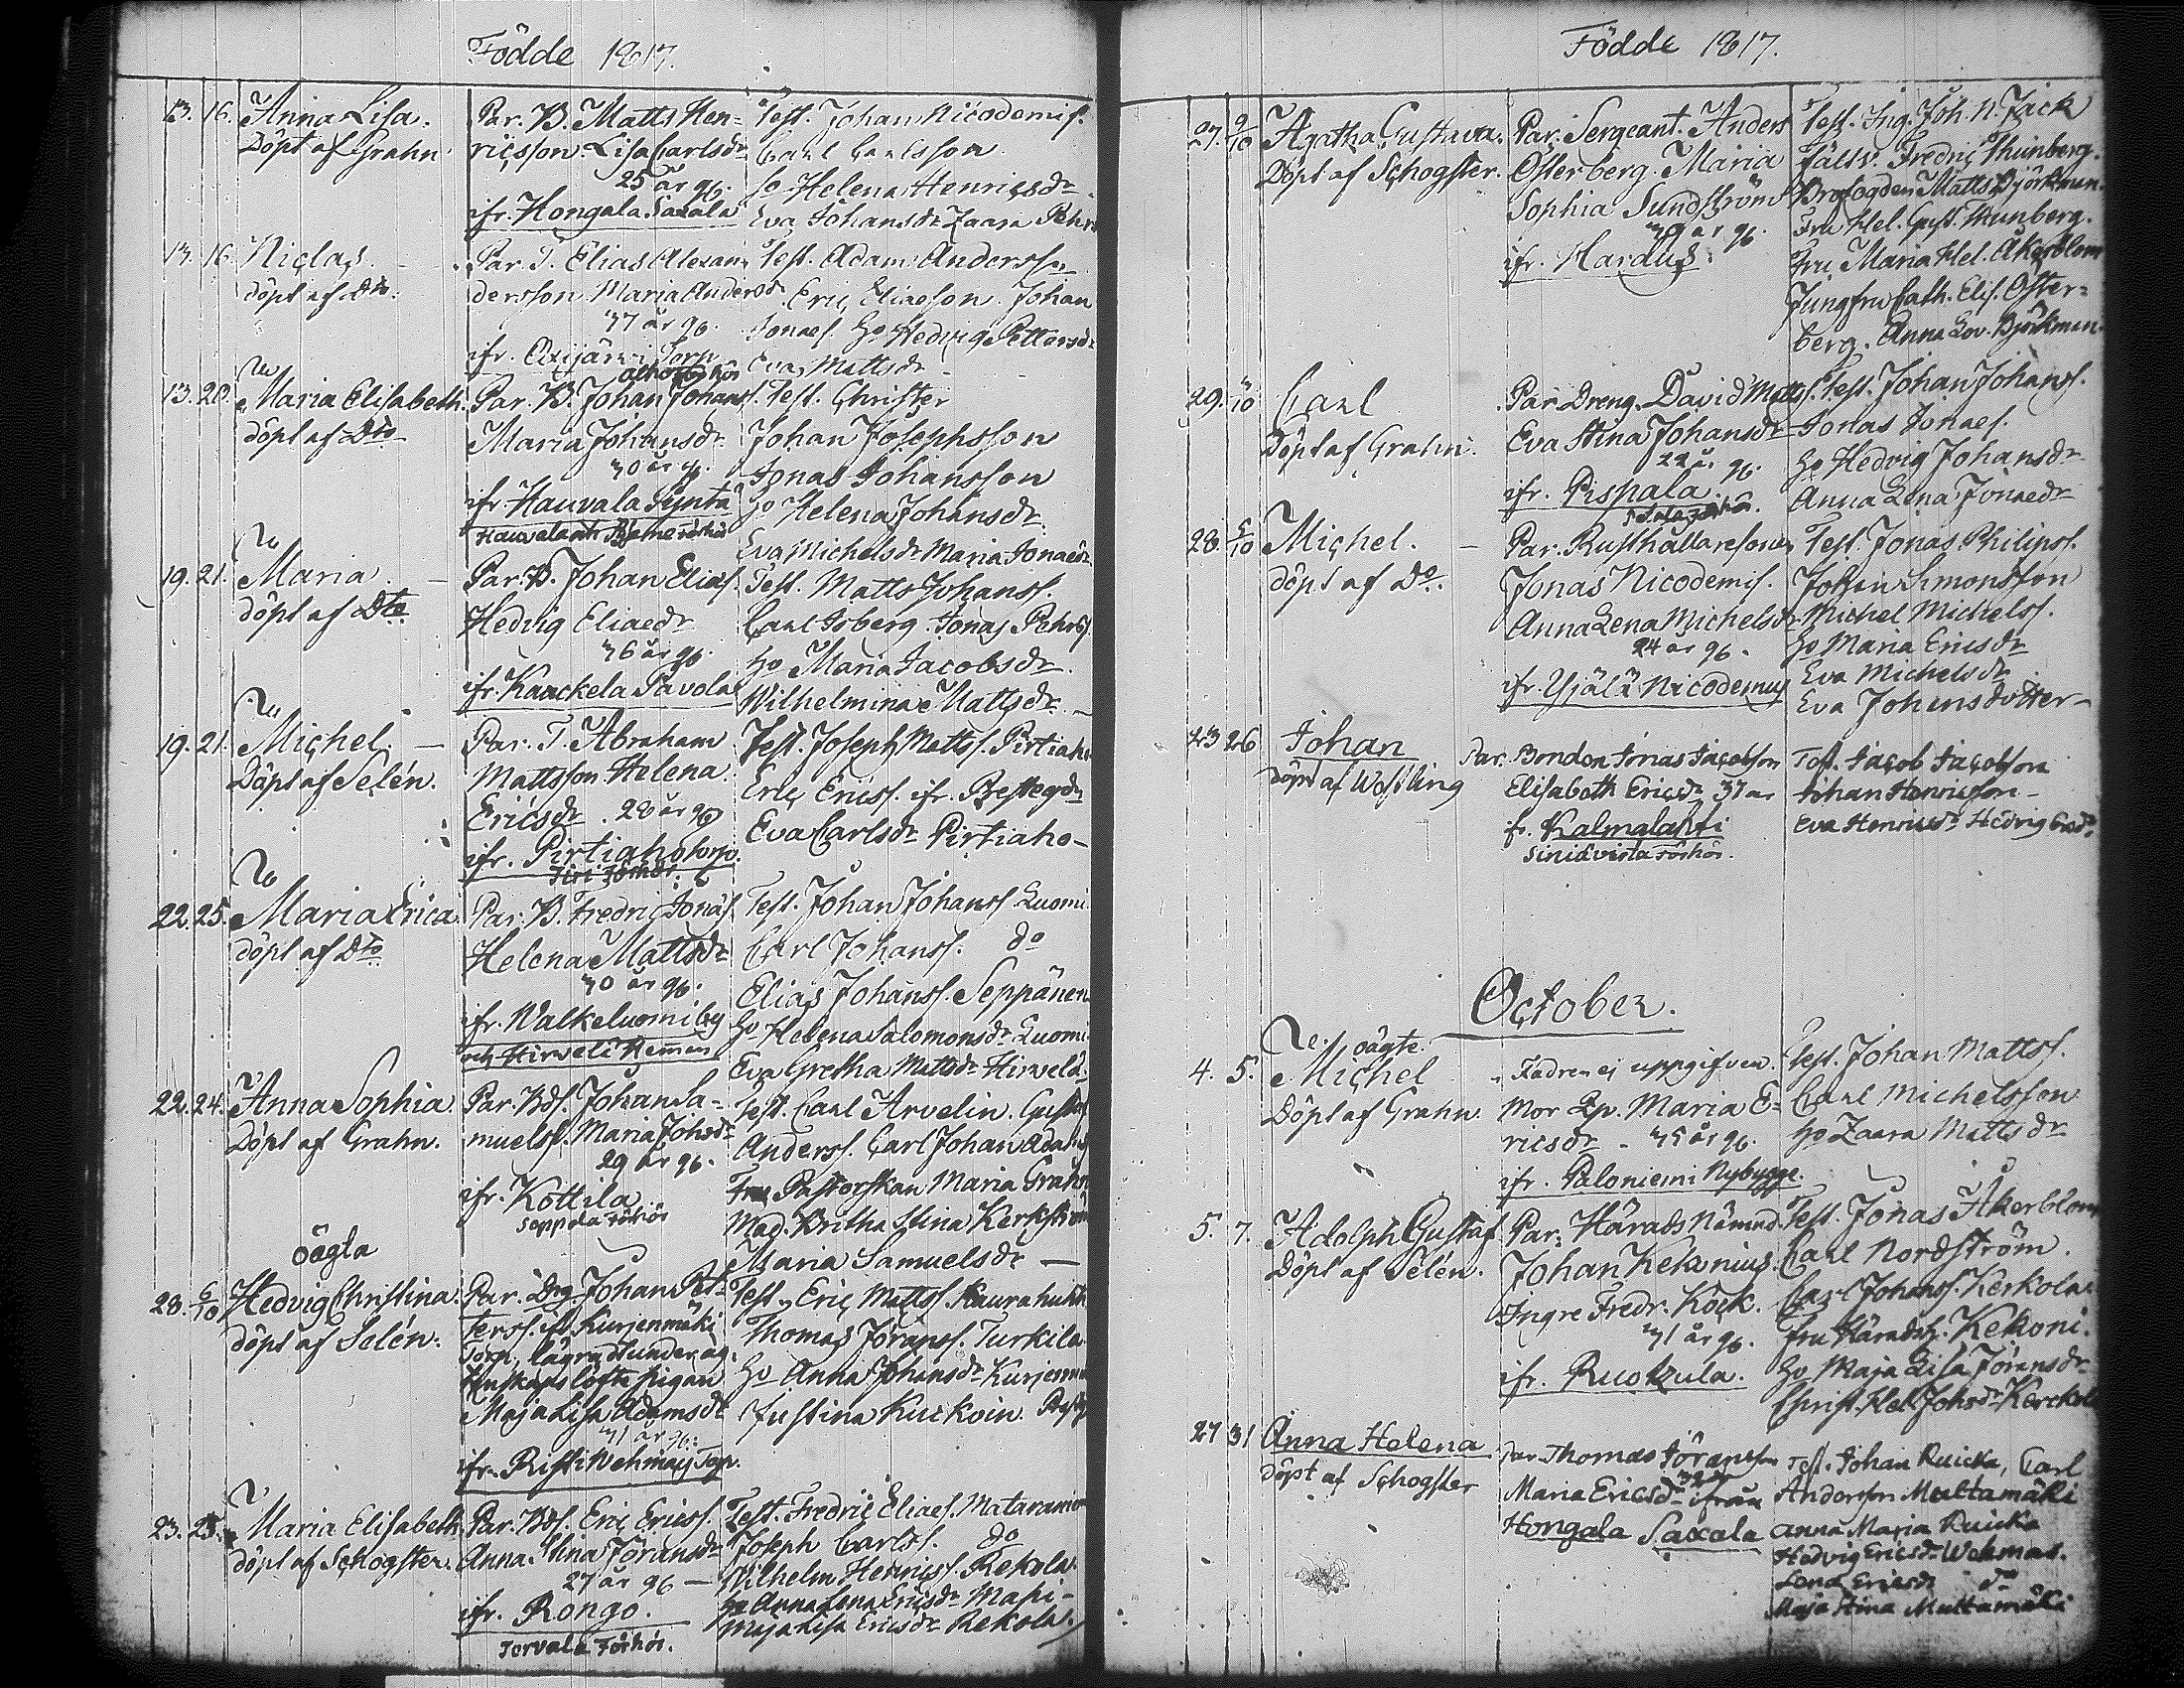 Födde 1817.
13. 16. Anna Lisa.
Döpt af Grahn.
Par. B. Matts Hen=
ricsson. Lisa Carlsdr
25 år gb.
ifr. Hongola Saxala
Test. Johan Nicodemis.
Carl Carlsson.
Ho Helena Henricsdr
Eva Johansdr Zaara Pehrs
13. 16. Niclas.
döpt af Dto.
Par. T. Elias Alexan=
dersson Maria Andersdr
37 år gb.
Torp
Test. Adam Andersson
Eric Eliaesson. Johan
Jonaes. Ho Hedvig Pettersdr
Eva Mattsdr
13. 20. Maria Elisabeth.
döpt af Dto
Par. B. Johan Johanss.
Maria Johansdr
30 år gb.
ifr Hauvala Pynta
Test. Christer
Johan Josephsson
Jonas Johansson
Ho Helena Johansdr.
Eva Michelsdr Maria Jonaedr
19. 21. Maria.
döpt af Dto
Par. B. Johan Elias.
Hedvig Eliaedr
36 år gb.
ifr. Kaackela Pavola
Test. Matts Johanss.
Carl Isberg. Jonas Pehrss.
Ho Maria Jacobsdr.
Wilhelmina Mattsdr.
19. 21. Michel.
Döpt af Selén.
Par. T. Abraham
Mattsson Helena
Ericsdr. 28 år gb
ifr. Pirtiaho torp.
Test. Joseph Mattss. Pirtiaho
Eric Ericss. ifr. Prestegdn
Eva Carlsdr Pirtiaho
22. 25. Maria Erica.
döpt af Dto
Par. B. Fredric Jonas.
Helena Mattsdr
30 år gb.
ifr. Walkeluomi by
och Hirvelä Hemman
Test. Johan Johanss. Luomi
Carl Johanss. do
Elias Johanss. Seppänen
Ho Helena Salomonsdr Luomi
Eva Gretha Mattsdr Hirvelä
22. 24. Anna Sophia.
Döpt af Grahn.
Par. Bds. Johan Sa=
muelss. Maria Johsdr
29 år gb.
ifr. Kottila.
Seppola Förhör
Test. Carl Arvelin. Gustaf
Anderss. Carl Johan Adams
Pastorskan Maria Grahn
Mad. Britha Stina Kerkström
Maria Samuelsdr
oägta
28. 6/10 Hedvig Christina.
döpt af Selén.
Par. Drg. Johan Pet=
terss. ifr. Kurjenmäki
Torp, lägrad under äg=
tenskaps löfte pigan
Maja Lisa Adamsdr
31 år gb.
ifr. Risti Wehmaj Torp.
Test. Eric Mattss. Kaurahuhta
Thomas Jöranss. Turkila
Ho Anna Johansdr Kurjenmä
Justina Kuckoin.
23. 25. Maria Elisabeth
döpt af Schogster.
Par. Bds. Eric Ericss.
Anna Stina Jöransdr
27 år gb
ifr. Rongo.
Torvala Förhör.
Test. Fredric Eliaes. Mataraniemi
Joseph Carlss. do
Wilhelm Henricss. Rekola.
Ho Anna Lena Ericsdr
Maja Lisa Ericsdr Rekola.
Födde 1817.
27. 9/10 Agatha Gustava.
Döpt af Schogster.
Par. Sergeant. Anders
Österberg. Maria
Sophia Sundström
39 år gb.
ifr. Harduss.
Test. Ing. Joh. N. Jack
Fältv. Fredric Thunberg.
Brofogden Matts Björkman.
Fru Hel. Gust. Thunberg.
Fru Maria Hel. Åkerblom
Jungfru Cath. Elis. Öster=
berg. Anna Lov. Björkman.
29. Carl
Döpt af Grahn.
Par. Dreng. David Mattss.
Eva Stina Johansdr
22 år gb.
ifr. Pispala.
Test. Johan Johanss.
Jonas Jonaes.
Ho Hedvig Johansdr
Anna Lena Jonaedr
28. 5/10 Michel.
döpt af Do.
Par. Rusthållaresonen
Jonas Nicodemis.
Anna Lena Michelsdr
24 år gb.
ifr. Yijälä Nicodemus
Test. Jonas Philipss.
Johan Simonsson
Michel Michelss.
Ho Maria Ericsdr
Eva Michelsdr
Eva Johansdotter
23 26 Johan
döpt af Wessling
Par. Bonden Jonas Jacobsson
Elisabeth Ericsdr 37 år
ifr. Kalmalahti
Siniävirta Förhör.
Test. Jacob Jacobsson
Johan Henricsson
Eva Henricsdr Hedvig Ericsdr
October.
oägte.
4. 5. Michel
Döpt af Grahn.
Fadren ej uppgifven.
Mor Lp. Maria E=
ricsdr 35 år gb.
ifr. Paloniemi Nybygge.
Test. Johan Mattss.
Carl Michelsson
Ho Zaara Mattsdr
5. 7. Adolph Gustaf
Döpt af Selén.
Par. Härads Nämnd.
Johan Kekonius.
Ingre Fredr. Köck.
31 år gb.
ifr. Ruokula.
Test. Jonas Åkerblom
Carl Nordström.
Carl Johanss. Kerkola
Fru Häradsh. Kekoni.
Ho Maja Lisa Jöransdr
Christ. Hel. Johsdr Kerckola
27 31 Anna Helena
döpt af Schogster
Par. Thomas Jöransson
Maria Ericsdr ifrån
Hongola Saxala
Test. Johan Ruicka, Carl
Andersson Multamäki
Anna Maria Ruicka
Hedvig Ericsdr Wehmas.
Lena Ericsdr do
Maja Stina Multamäki